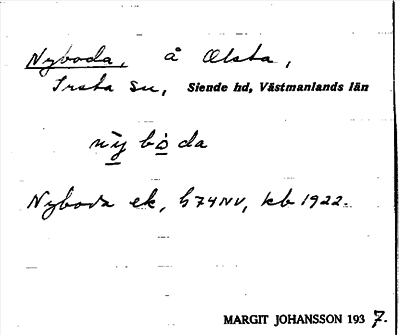 Nyboda, å Ælsta,
Irsta sn, Siende hd, Västmanlands län
nỳ bò da
Nyboda ek, h74NV, kb 1922.
MARGIT JOHANSSON 1937.